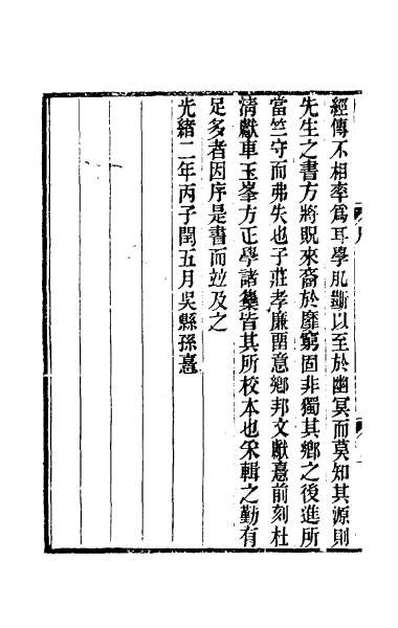 經傳不相率爲耳學肊斷以至於幽冥而莫知其源則
先生之書方將貺來裔於靡窮固非獨其鄉之後進所
當竺守而弗失也子莊孝廉畱意鄉邦文獻憙前刻杜
淸獻車玉峯方正學諸集皆其所校本也采輯之勤有
足多者因序是書而竝及之
光緒二年丙子閏五月吳縣孫憙